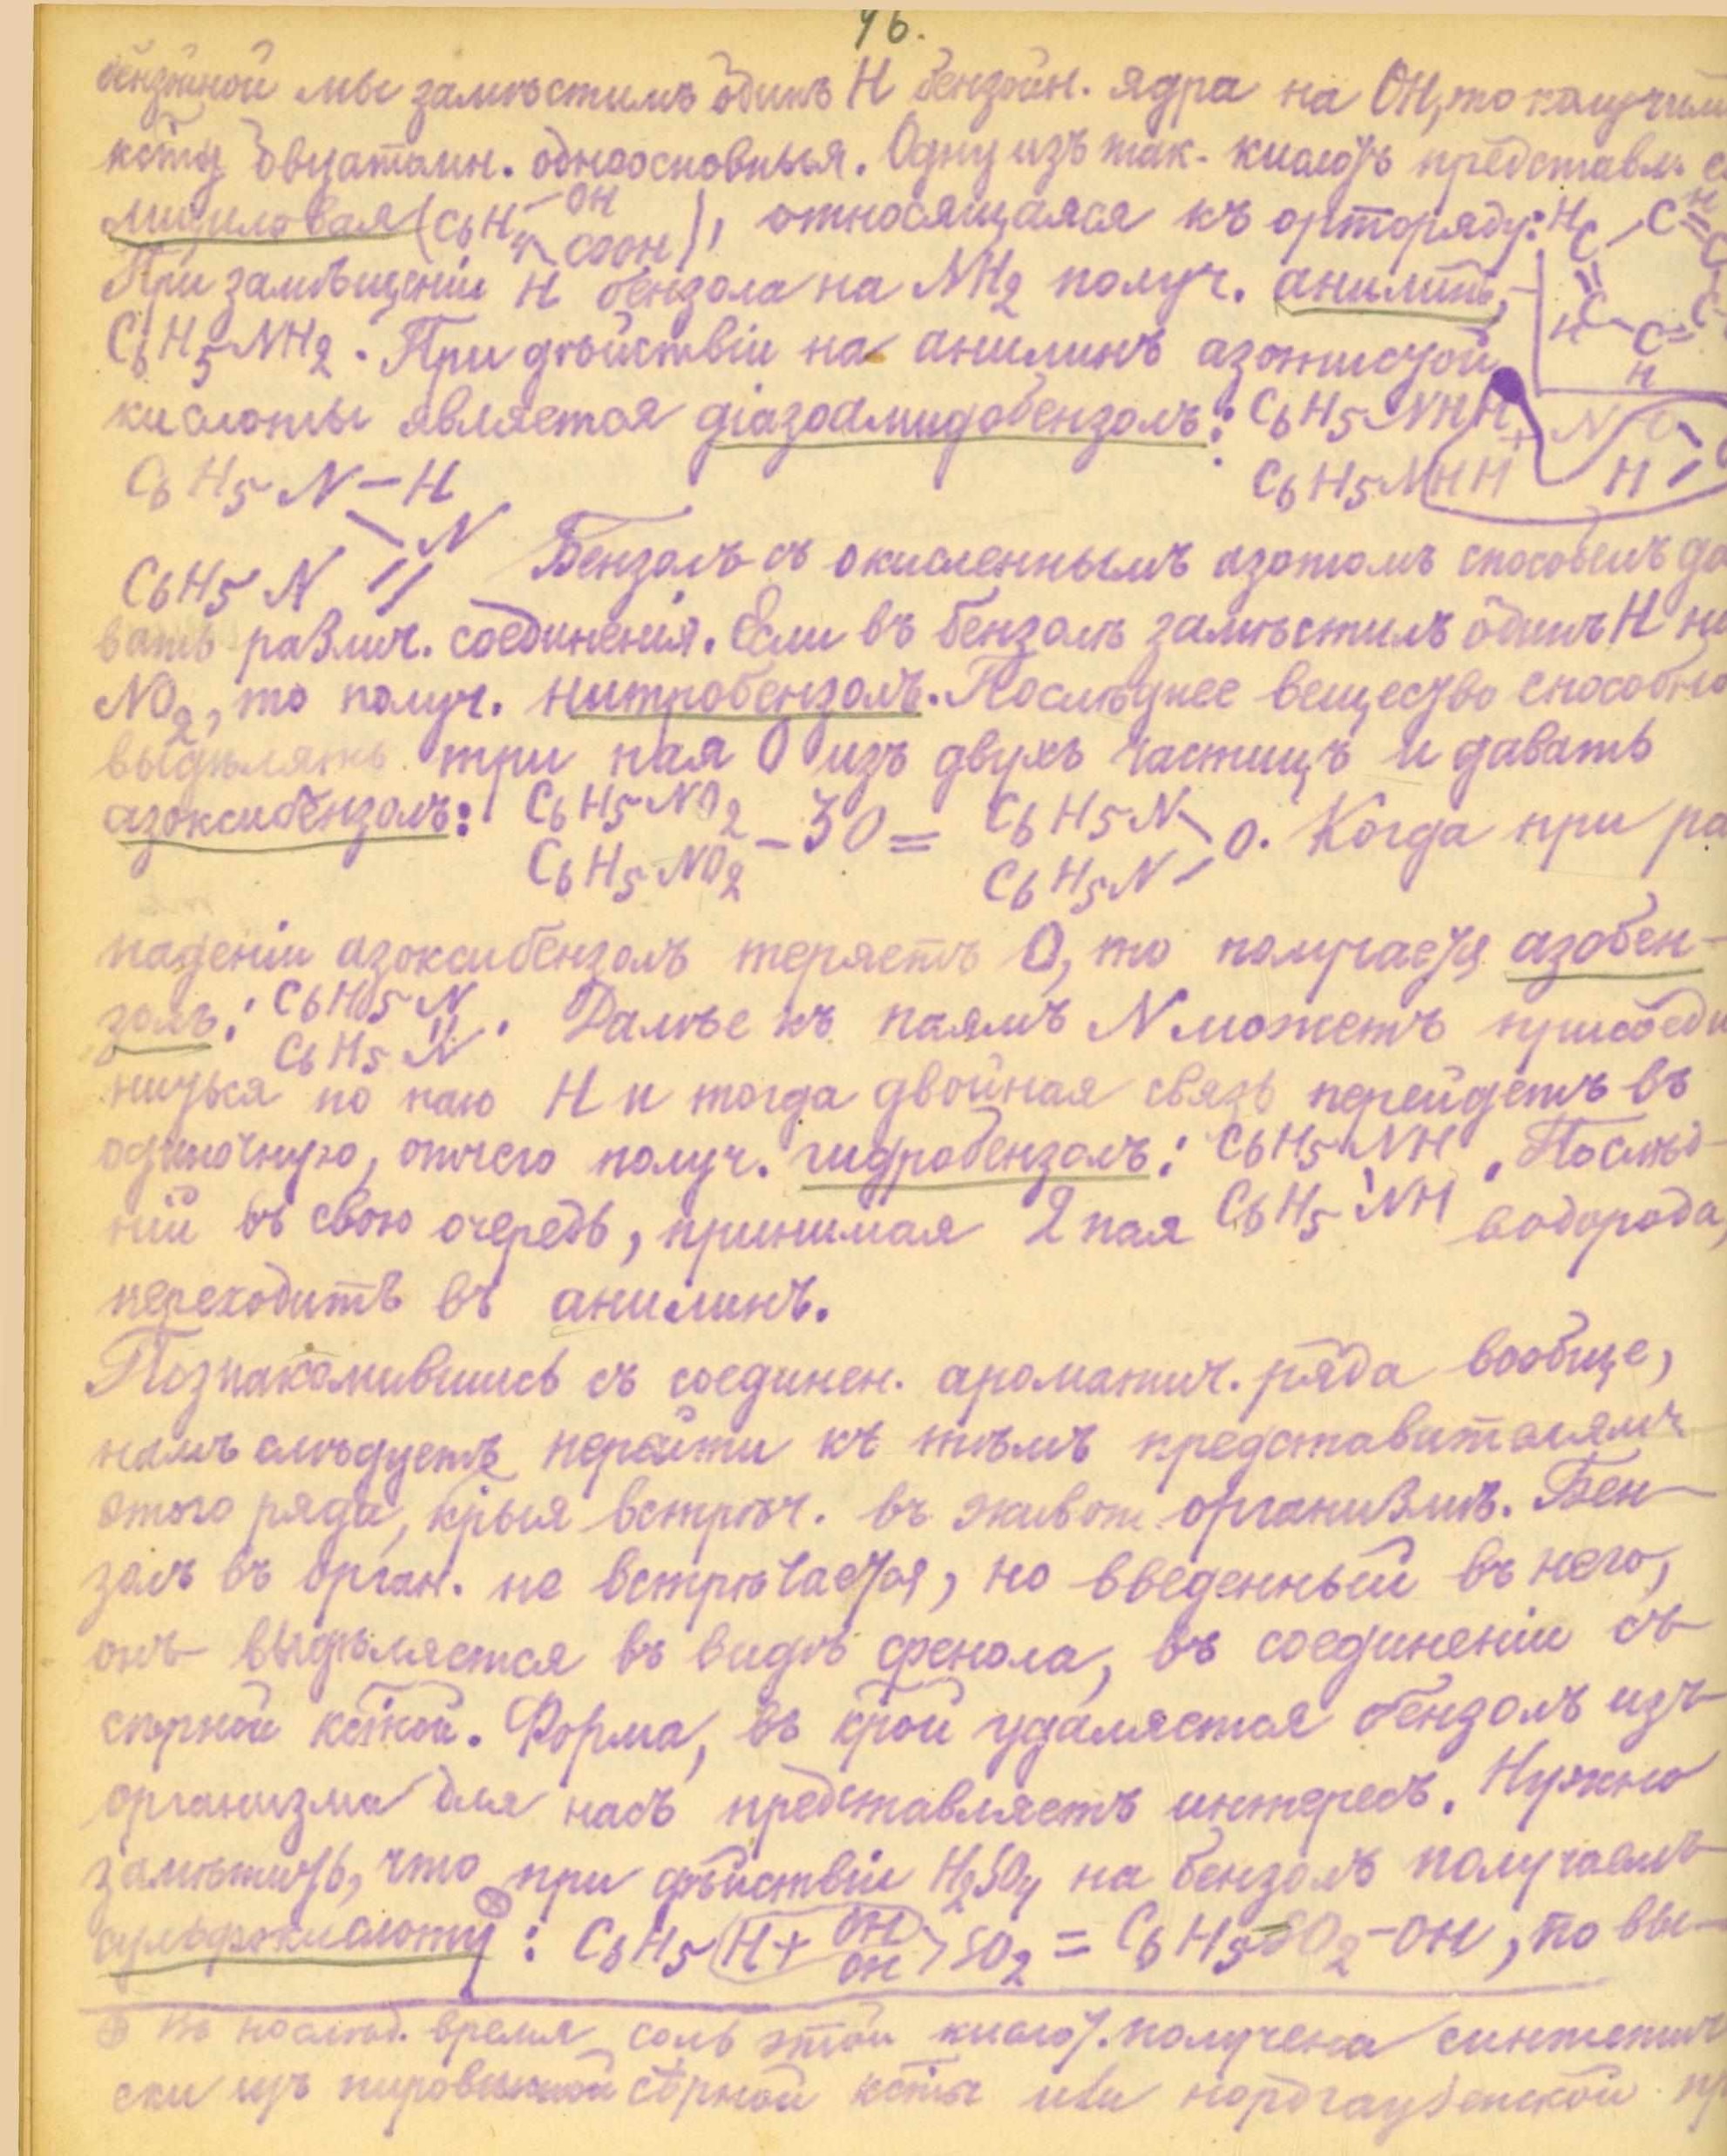 46.
бензойной мы замѣстимъ одинъ H бензойн. ядра на OH, то получимъ
кету двуатомн. одноосновныя. Одну изъ так. кислотъ представл.
лициловая (C6H4 –OH COOH), относящаяся къ орторяду: H C – C H
При замѣщеніи H бензола на NH2 получ. анилинъ,
C6H5NH2. При дѣйствіи на анилинъ азотистой
кислоты является діазоамидобензолъ: C6H5NHH + N O
C6H5N–H C6H5NHH H
N
C6H5N Бензолъ съ окисленнымъ азотомъ способенъ да
вать различ. соединенія. Если въ бензолѣ замѣстимъ одинъ H на
NO2, то получ. нитробензолъ. Послѣднее вещество способно
выдѣлять три пая O изъ двухъ частицъ и давать
азоксибензолъ: C6H5NO2 C6H5NO2 – 3O = C6H5N C6H5N O. Когда при ра
паденіи азоксибензолъ теряетъ O, то получается азобен-
золъ: C6H5N = C6H5N. Далѣе къ паямъ N можетъ присоеди
ниться по паю H и тогда двойная связь перейдетъ въ
одиночную, отчего получ. гидробензолъ: C6H5NH . Послѣд-
ній въ свою очередь, принимая 2 пая C6H5NH водорода,
переходитъ въ анилинъ.
Познакомившись съ соединен. ароматич. ряда вообще,
намъ слѣдуетъ перейти къ тѣмъ представителямъ
этого ряда, крыя встрѣч. въ живот. организмѣ. Бен-
золъ въ орган. не встрѣчается, но введенный въ него,
онъ выдѣляется въ видѣ фенола, въ соединеніи съ
сѣрной кстой. Форма, въ крой удаляется бензолъ изъ
организма для насъ представляетъ интересъ. Нужно
замѣтить, что при дѣйствіи H2SO4 на бензолъ получаемъ
сульфокислоту ⊕: C6H5 H + OH OH > SO2 = C6H5SO2–OH, по вы-
⊕ Въ послѣд. время соль этой кислот. получена синтетич
ски изъ сѣрной ксты или нордгаузенской